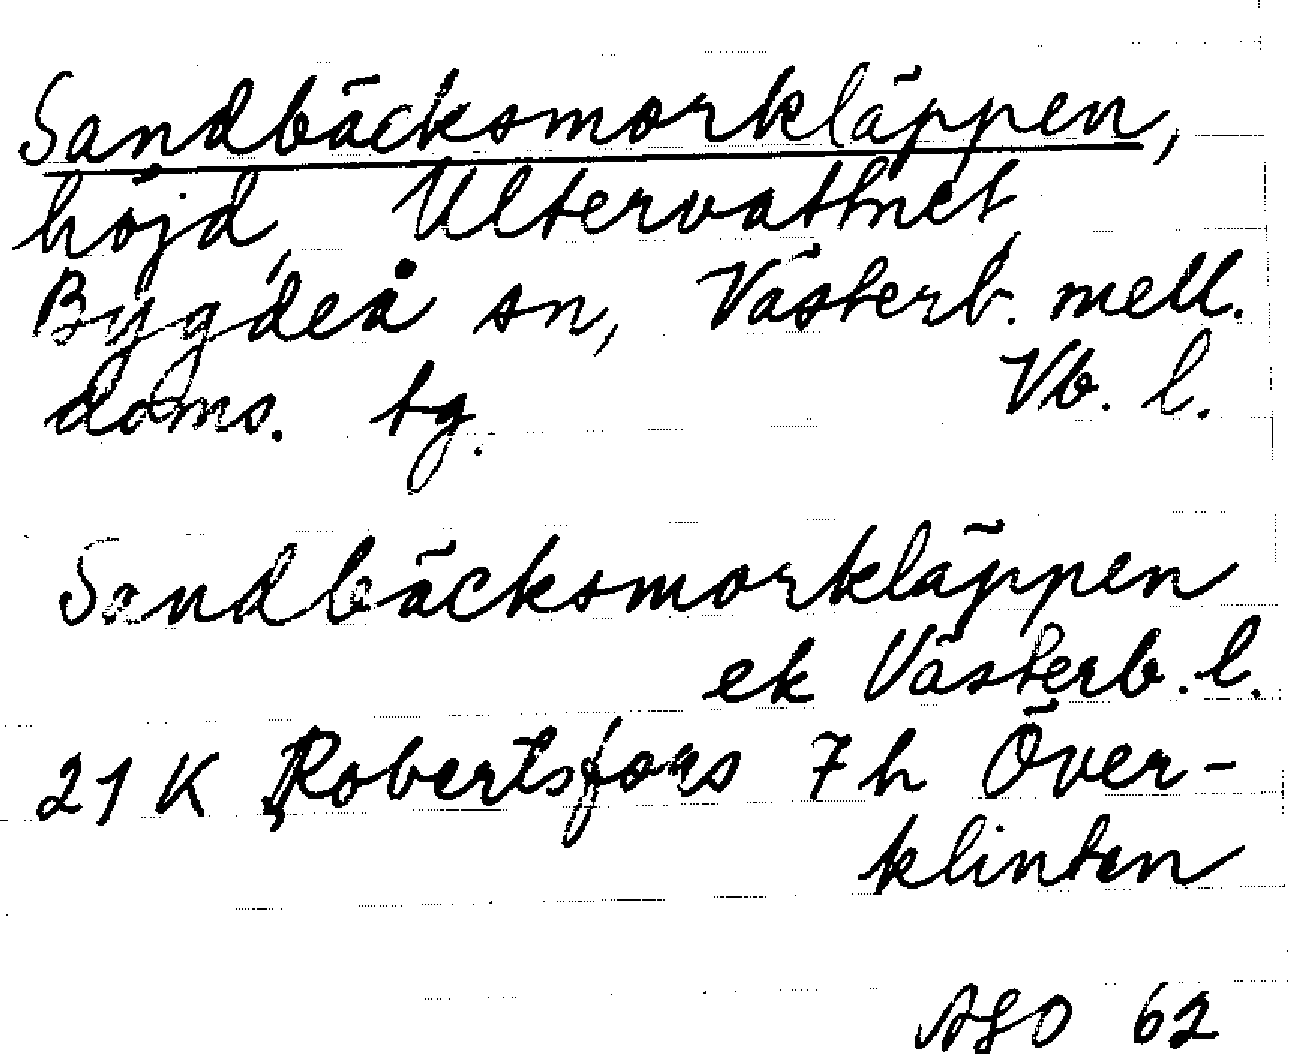 Sandbäcksmorkläppen,
höjd, Ultervattnet,
Bygdeå sn, Västerb. mell.
doms. tg. Vb. l.
Sandbäcksmorkläppen
ek Västerb. l.
21 K Robertsfors 7h Över-
klinten
62